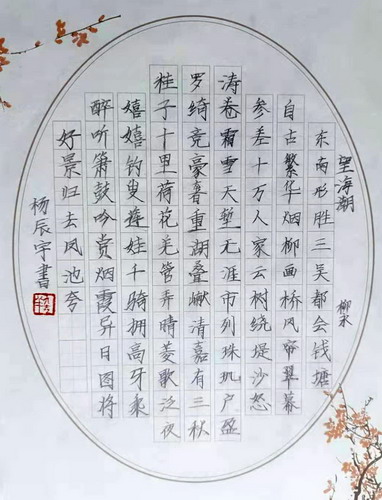 望海潮 柳永
东南形胜三吴都会钱塘
自古繁华烟柳画桥风帘翠幕
参差十万人家云树绕堤沙怒
涛卷霜雪天堑无涯市列珠玑户盈
罗绮竞豪奢重湖叠巘清嘉有三秋
桂子十里荷花羌管弄晴菱歌泛夜
嬉嬉钓叟莲娃千骑拥高牙乘
醉听箫鼓吟赏烟霞异日图将
好景归去凤池夸
杨辰宇書